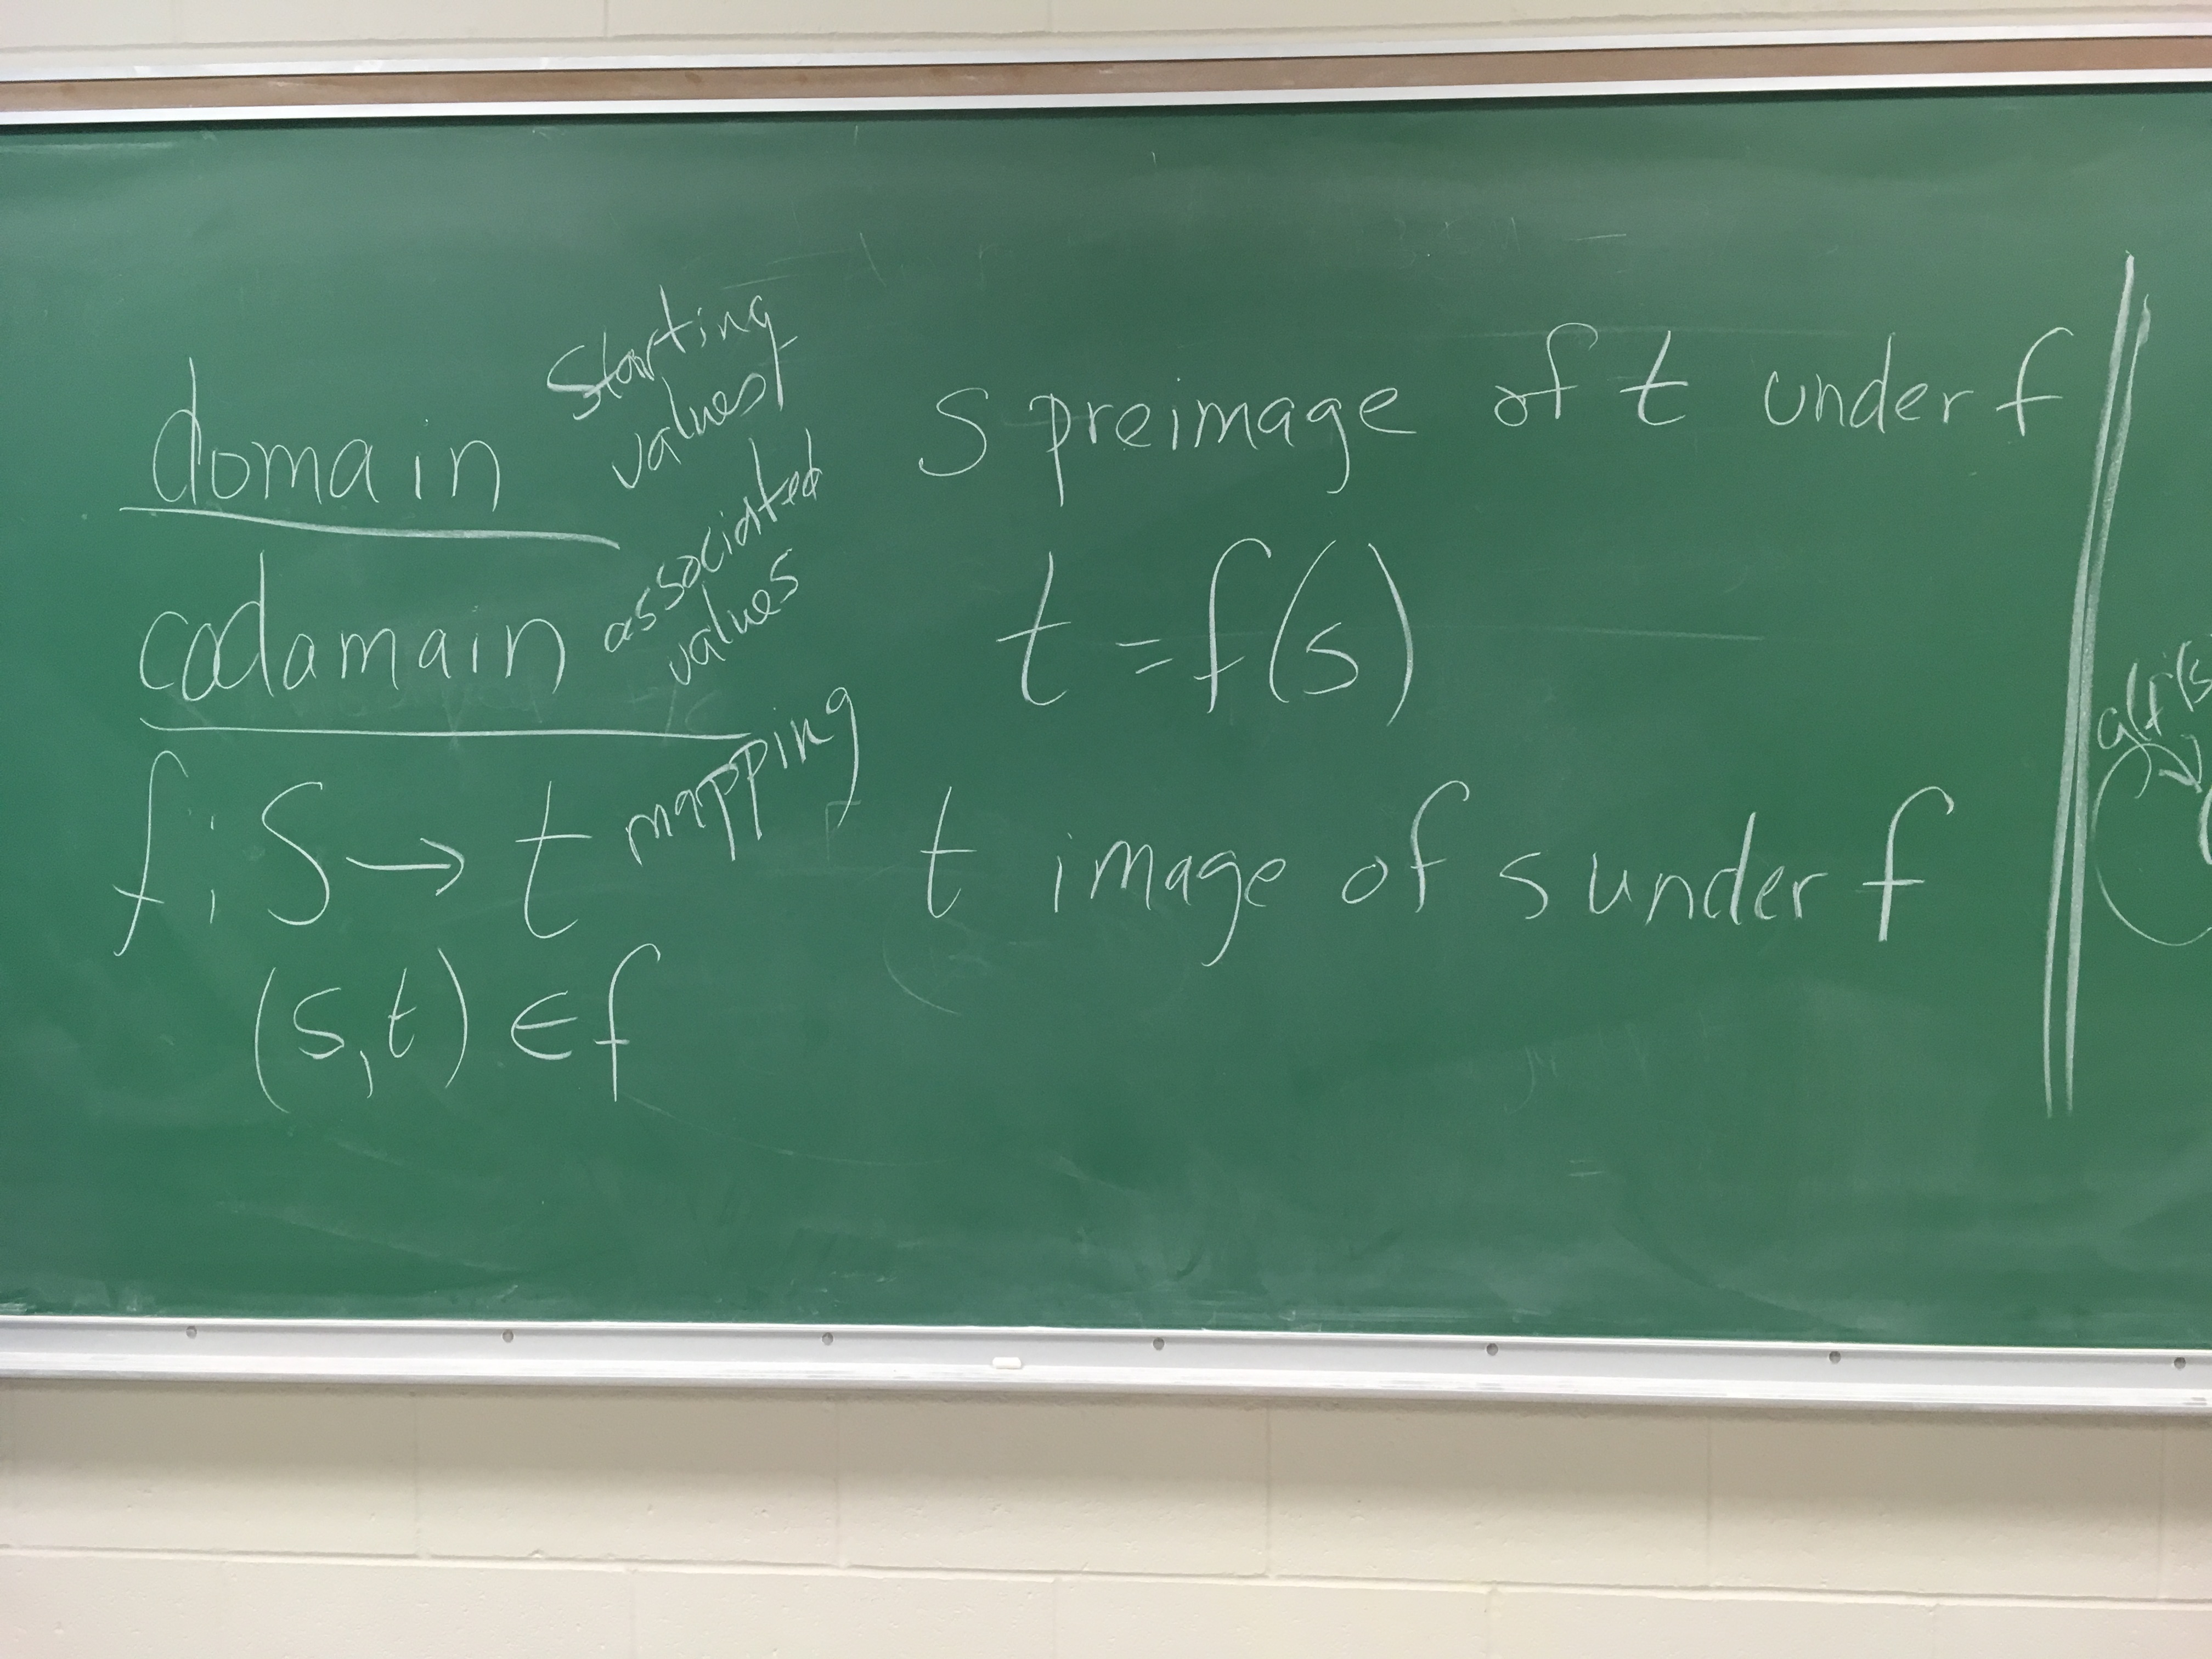 domain starting
values
codamain associated
values
f: S → t mapping
(s,t) ∈ f
S preimage of t under f
t = f(s)
t image of s under f